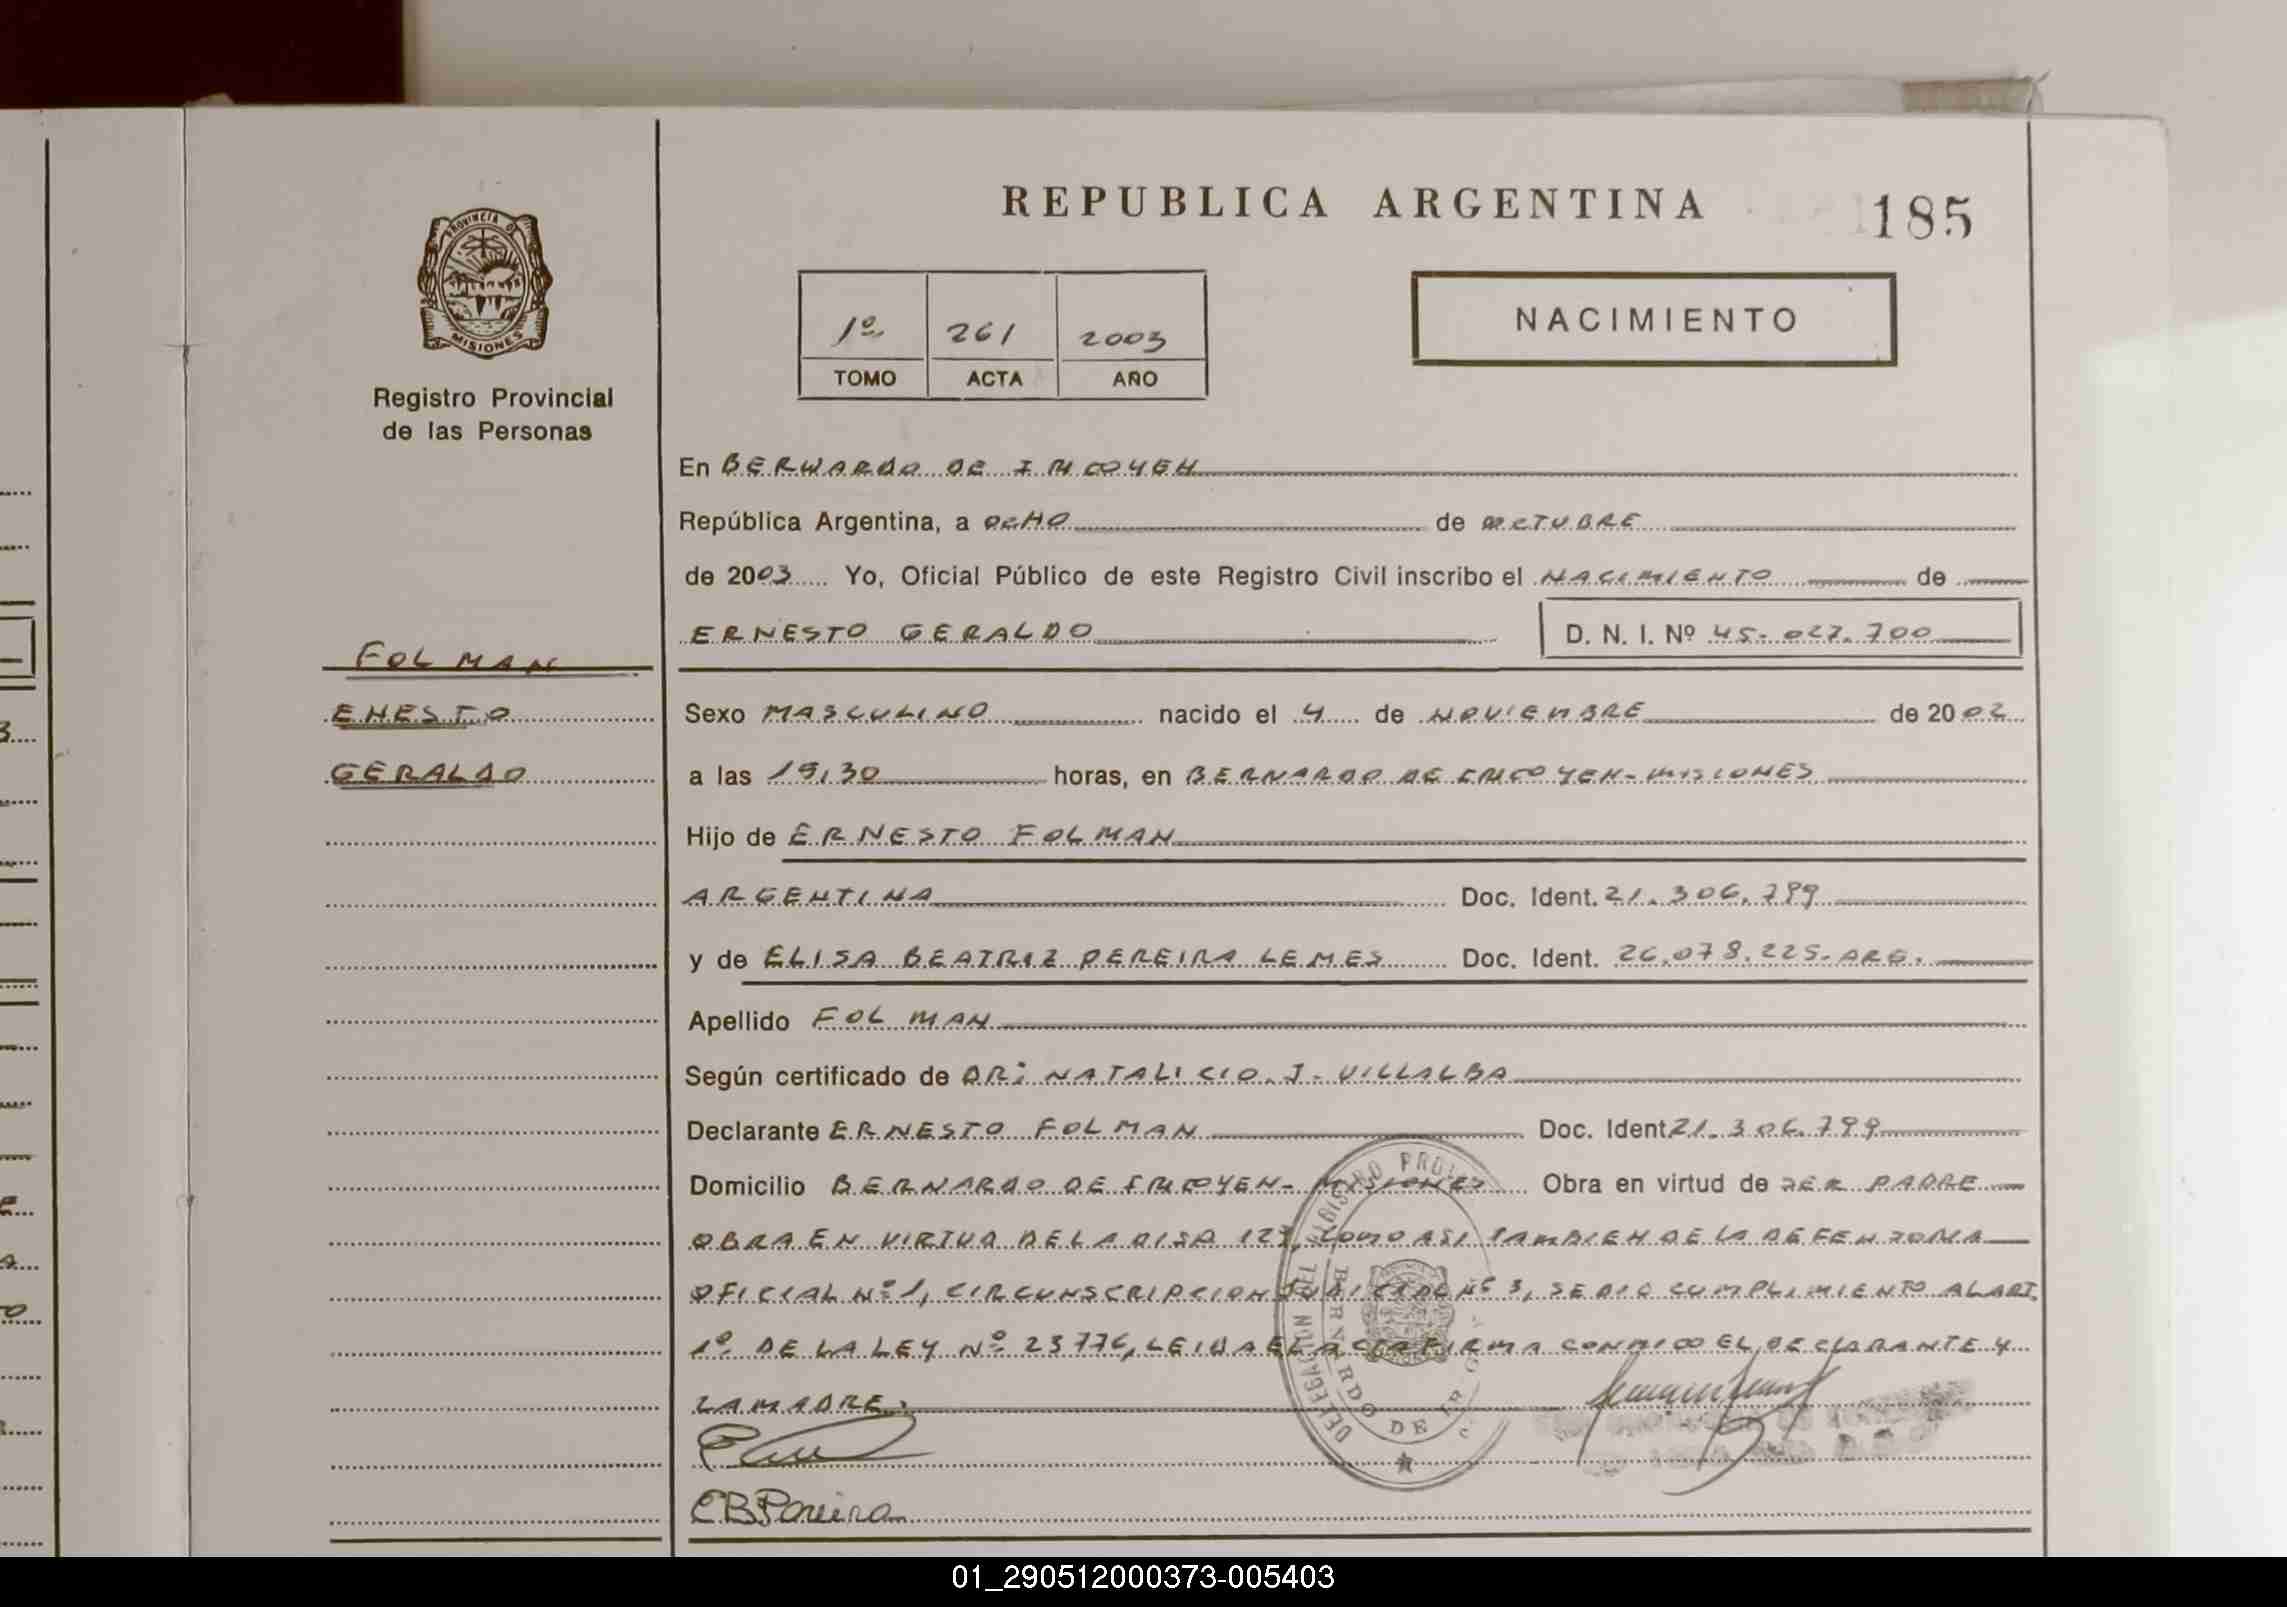 REPUBLICA ARGENTINA
185
PROVINCIA DE MISIONES
Registro Provincial
de las Personas
1º 261 2003
TOMO ACTA AÑO
NACIMIENTO
En BERNARDO DE IRIGOYEN
República Argentina, a OCHO de OCTUBRE
de 2003 Yo, Oficial Público de este Registro Civil inscribo el NACIMIENTO de
ERNESTO GERALDO D. N. I. Nº 45.027.700
FOLMAN
ENESTO
GERALDO
Sexo MASCULINO nacido el 4 de NOVIEMBRE de 2002
a las 19,30 horas, en BERNARDO DE IRIGOYEN-MISIONES
Hijo de ERNESTO FOLMAN
ARGENTINA Doc. Ident. 21.306.799
y de ELISA BEATRIZ PEREIRA LEMES Doc. Ident. 26.078.225-ARG.
Apellido FOLMAN
Según certificado de DR: NATALICIO J. VILLALBA
Declarante ERNESTO FOLMAN Doc. Ident 21.306.799
Domicilio BERNARDO DE IRIGOYEN- MISIONES Obra en virtud de SER PADRE
OBRA EN VIRTUD DE LA DISP. COMO ASI TAMBIEN DE LA DEFENSORIA
OFICIAL Nº 1, CIRCUNSCRIPCION JUDICIAL Nº 3, SE DIO CUMPLIMIENTO AL ART.
1º DE LA LEY Nº 23776, LEIDA EL ACTA FIRMA CONMIGO EL DECLARANTE Y
LA MADRE.
DELEGACION DEL REGISTRO
BERNARDO DE
EBPereira
01_290512000373-005403